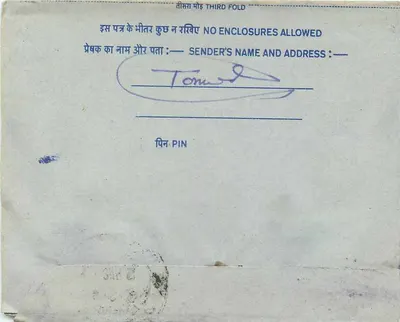 तीसरा मोड़ THIRD FOLD
इस पत्र के भीतर कुछ न रखिए NO ENCLOSURES ALLOWED
प्रेषक का नाम और पता :— SENDER'S NAME AND ADDRESS :—
पिन PIN